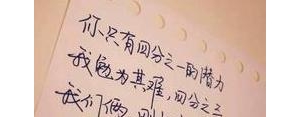 你只有四分之一的潜力
我勉为其难,四分之三
我们俩